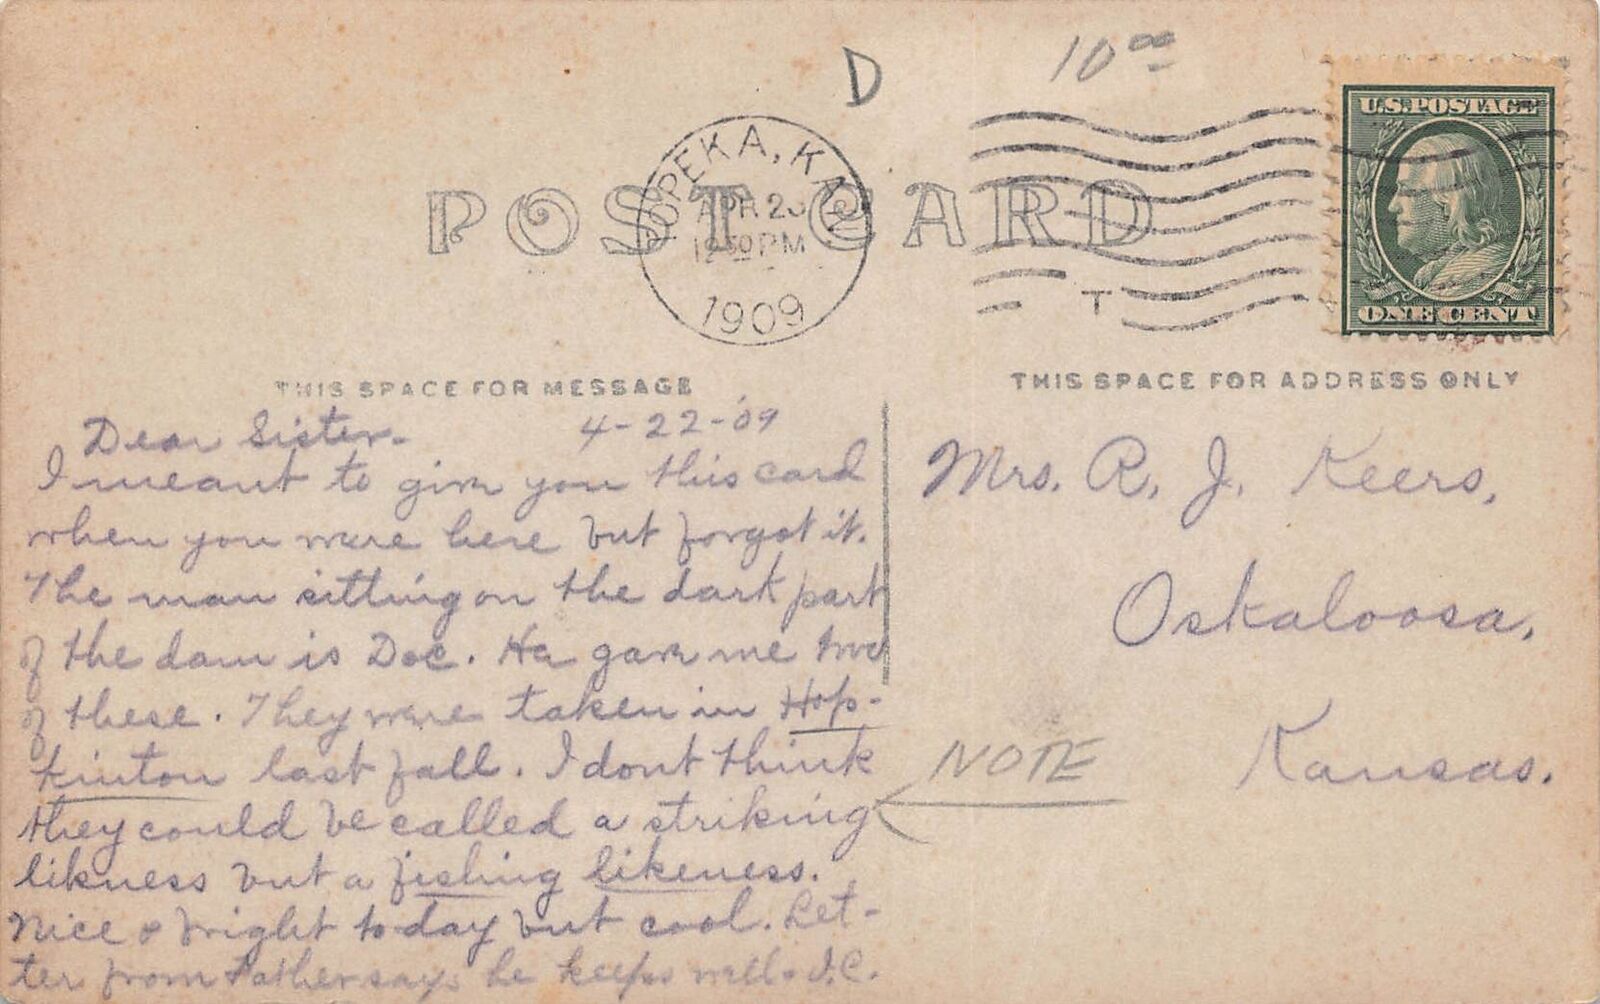 D
10 00
U.S. POSTAGE
ONE CENT
TOPEKA, KAN.
APR 23
12 30 PM
1909
T
POST CARD
THIS SPACE FOR MESSAGE
THIS SPACE FOR ADDRESS ONLY
Dear Sister. 4-22-'09
I meant to give you this card
when you were here but forgot it.
The man sitting on the dark part
of the dam is Doc. He gave me two
of these. They were taken in Hop-
kinton last fall. I dont think
they could be called a striking
likness but a fishing likeness.
Nice & bright to-day but cool. Let-
ter from Father says he keeps well. J.C.
Mrs. R. J. Keers,
Oskaloosa,
Kansas.
NOTE